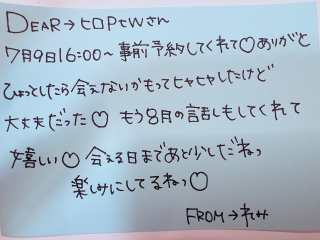 DEAR→ヒロPtWさん
7月9日16:00~事前予約してくれて♡ありがと
ひょっとしたら会えないかもってヒヤヒヤしたけど
大丈夫だった♡ もう8月の話しもしてくれて
嬉しい♡ 会える日まであと少しだねっ
楽しみにしてるねっ♡
FROM→れみ